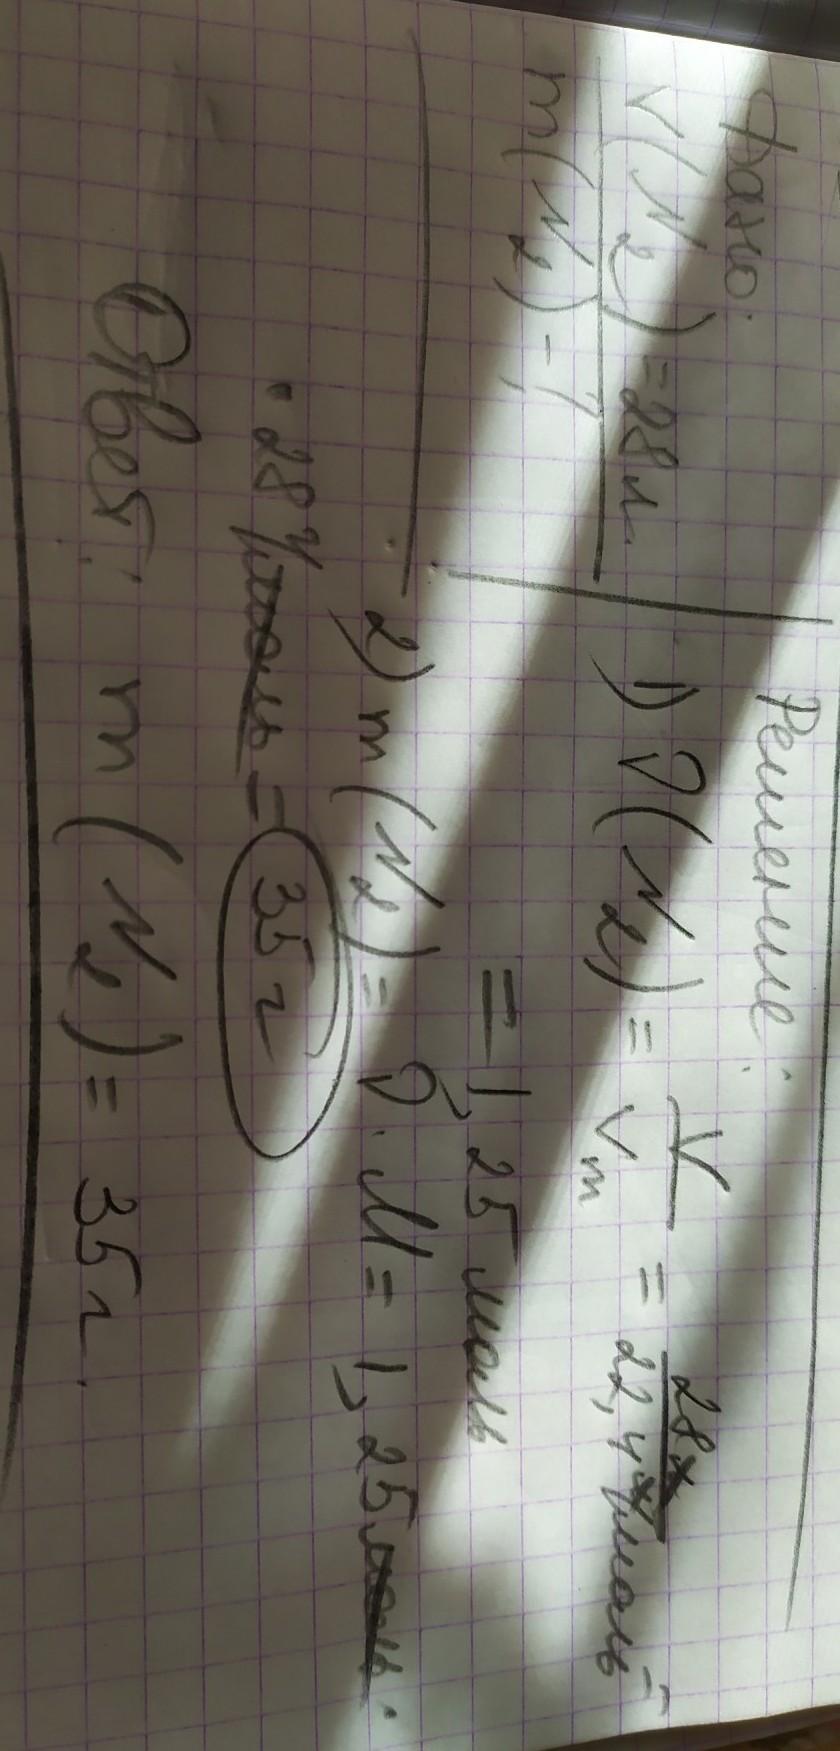 Дано:
V(N₂) = 28 л.
m(N₂) - ?
Решение:
1) ν(N₂) = V/Vm = 28 л/22,4 л/моль =
= 1,25 моль
2) m(N₂) = ν · M = 1,25 моль ·
· 28 г/моль = 35 г
Ответ: m(N₂) = 35 г.